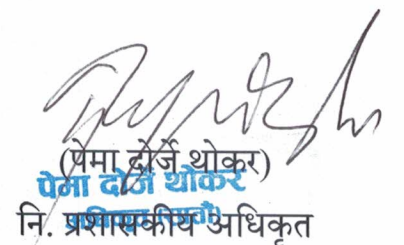 (पेमा दोर्जे थोकर)
पेमा दोर्जे थोकर
नि. प्रशासकीय अधिकृत